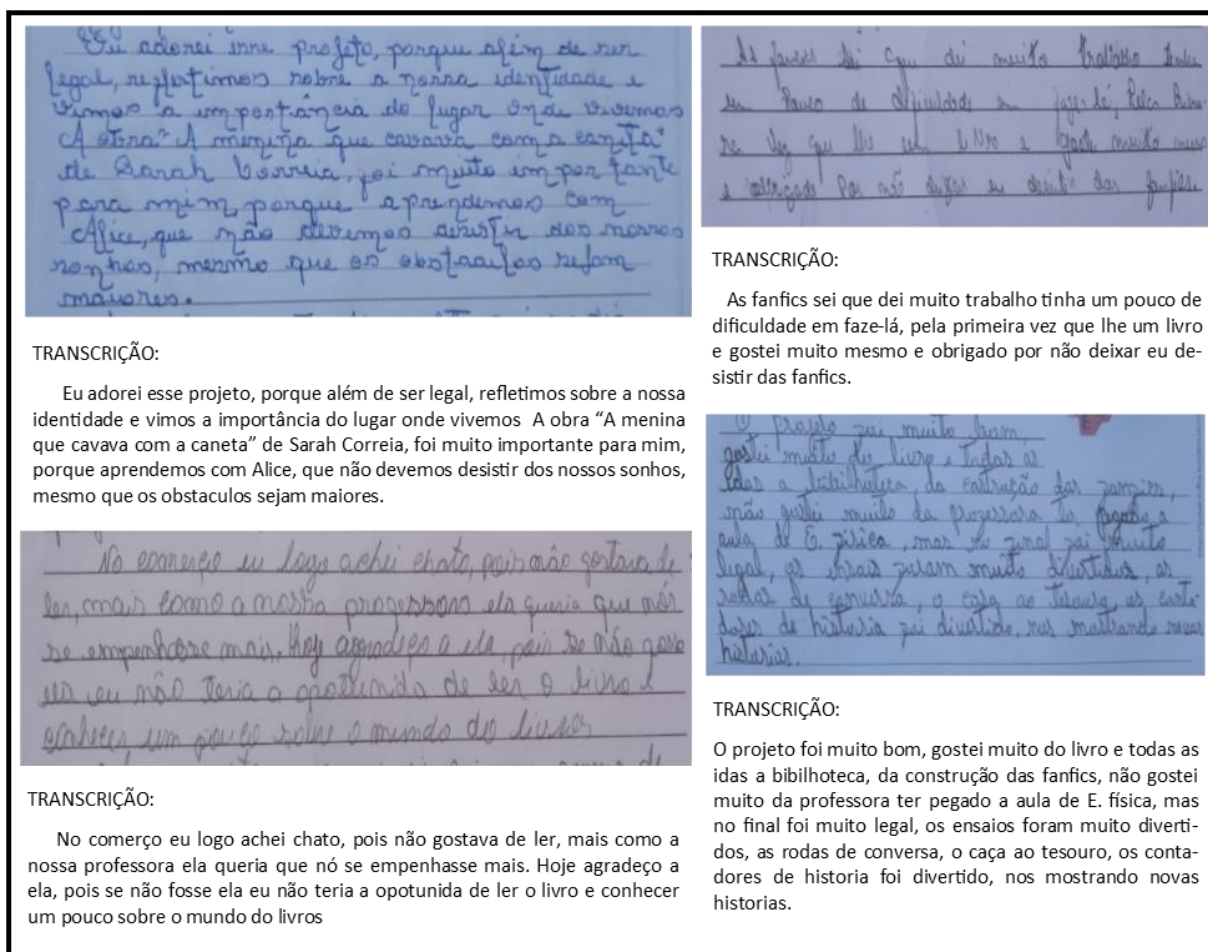 Eu adorei esse projeto, porque além de ser
legal, refletimos sobre a nossa identidade e
vimos a importância do lugar onde vivemos
A obra "A menina que cavava com a caneta"
de Sarah Correia, foi muito importante
para mim, porque aprendemos com
Alice, que não devemos desistir dos nossos
sonhos, mesmo que os obstaculos sejam
maiores.
TRANSCRIÇÃO:
Eu adorei esse projeto, porque além de ser legal, refletimos sobre a nossa
identidade e vimos a importância do lugar onde vivemos A obra “A menina
que cavava com a caneta” de Sarah Correia, foi muito importante para mim,
porque aprendemos com Alice, que não devemos desistir dos nossos sonhos,
mesmo que os obstaculos sejam maiores.
No comerço eu logo achei chato, pois não gostava de
ler, mais como a nossa professora ela queria que nós
se empenhasse mais. Hoje agradeço a ela, pois se não fosse
ela eu não teria a opotunida de ler o livro e
conhecer um pouco sobre o mundo do livros
TRANSCRIÇÃO:
No comerço eu logo achei chato, pois não gostava de ler, mais como a
nossa professora ela queria que nó se empenhasse mais. Hoje agradeço a
ela, pois se não fosse ela eu não teria a opotunida de ler o livro e conhecer
um pouco sobre o mundo do livros
As fanfics sei que dei muito trabalho tinha
um pouco de dificuldade em faze-lá, pela prime
ra vez que lhe um livro e gostei muito mesmo
e obrigado por não deixar eu desistir das fanfics
TRANSCRIÇÃO:
As fanfics sei que dei muito trabalho tinha um pouco de
dificuldade em faze-lá, pela primeira vez que lhe um livro
e gostei muito mesmo e obrigado por não deixar eu de-
sistir das fanfics.
O projeto foi muito bom,
gostei muito do livro e todas as
idas a bibilhoteca, da construção das fanfics,
não gostei muito da professora ter pegado a
aula de E. física, mas no final foi muito
legal, os ensais foram muito divertidos, as
rodas de conversa, o caça ao tesouro, os conta-
dores de historia foi divertido, nos mostrando novas
historias.
TRANSCRIÇÃO:
O projeto foi muito bom, gostei muito do livro e todas as
idas a bibilhoteca, da construção das fanfics, não gostei
muito da professora ter pegado a aula de E. física, mas
no final foi muito legal, os ensaios foram muito diverti-
dos, as rodas de conversa, o caça ao tesouro, os conta-
dores de historia foi divertido, nos mostrando novas
historias.